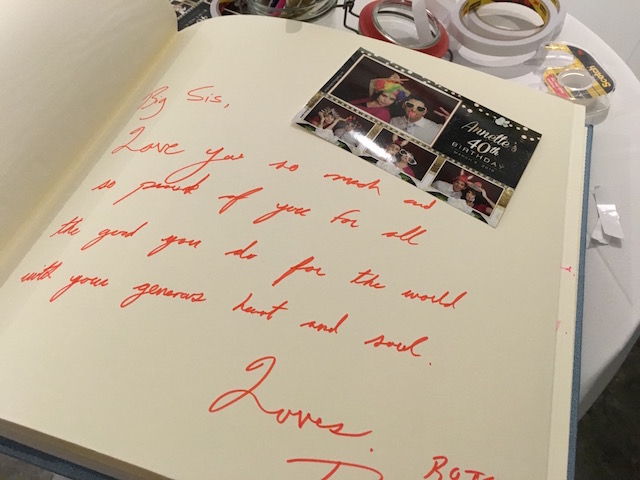 By Sis,
Love you so much and
so proud of you for all
the good you do for the world
with your generous heart and soul.
Loves.
Annette's
40th
BIRTHDAY
Scotch